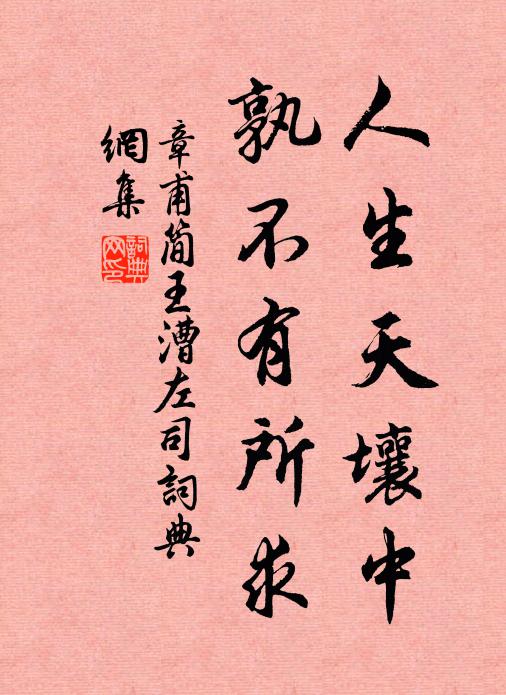 人生天壤中
孰不有所求
章甫简王漕左司詞典
網集
詞典
网印